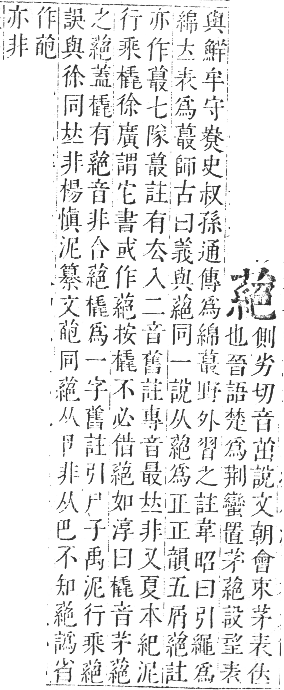 蕝
側劣切音茁說文朝會束茅表位
也晉語楚爲荆蠻置茅蕝設望表
與鮮牟守燎史叔孫通傳爲綿蕞野外習之註韋昭曰引繩爲
綿立表爲蕞師古曰義與蕝同一說从蕝爲正正韻五屑蕝註
亦作蕞七隊蕞註有去入二音舊註專音最𠀤非又夏本紀泥
行乘橇徐廣謂它書或作蕝按橇不必借蕝如淳曰橇音茅蕝
之蕝蓋橇有蕝音非合蕝橇爲一字舊註引尸子禹泥行乘蕝
誤與徐同𠀤非楊慎泥纂文葩同蕝从卪非从巴不知蕝譌省
作葩
亦非